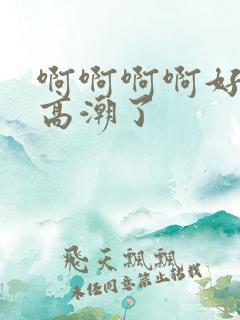 啊啊啊啊好
高潮了
飞天飘飘
未经同意禁止转载